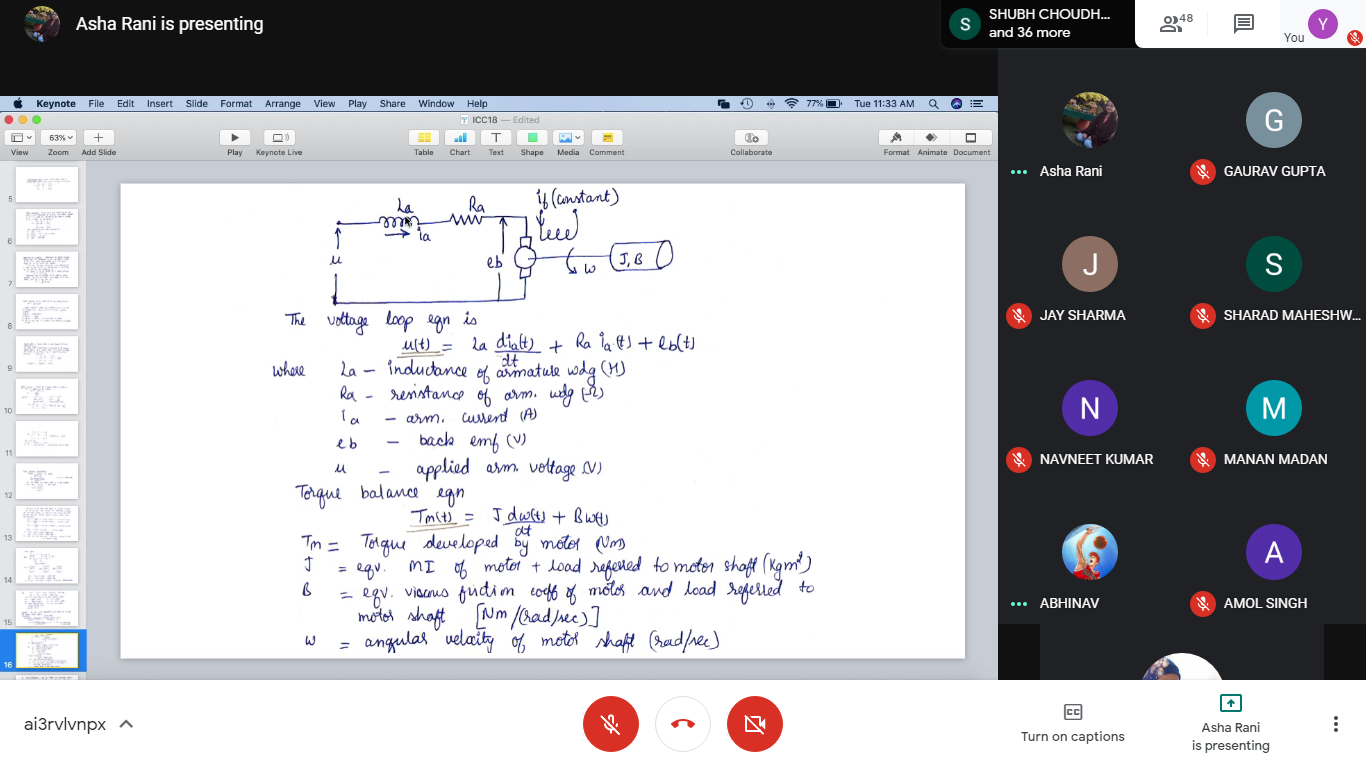 Asha Rani is presenting
SHUBH CHOUDH...
and 36 more
S
48
You
Y
Keynote File Edit Insert Slide Format Arrange View Play Share Window Help
77% Tue 11:33 AM
ICC18 — Edited
63%
View Zoom Add Slide
Play Keynote Live
Table Chart Text Shape Media Comment
Collaborate
Format Animate Document
5
6
7
8
9
10
11
12
13
14
15
16
La Ra if (constant)
ia
u eb w J, B
The voltage loop eqn is
u(t) = La dia(t)/dt + Ra ia(t) + eb(t)
where La – inductance of armature wdg (H)
Ra – resistance of arm. wdg (Ω)
ia – arm. current (A)
eb – back emf (V)
u – applied arm. voltage (V)
Torque balance eqn
Tm(t) = J dw(t)/dt + Bw(t)
Tm = Torque developed by motor (Nm)
J = eqv. MI of motor + load referred to motor shaft (Kgm²)
B = eqv. viscous friction coeff of motor and load referred to
motor shaft [Nm/(rad/sec)]
w = angular velocity of motor shaft (rad/sec)
Asha Rani
G
GAURAV GUPTA
J
JAY SHARMA
S
SHARAD MAHESHW...
N
NAVNEET KUMAR
M
MANAN MADAN
ABHINAV
A
AMOL SINGH
ai3rvlvnpx
CC
Turn on captions
Asha Rani
is presenting